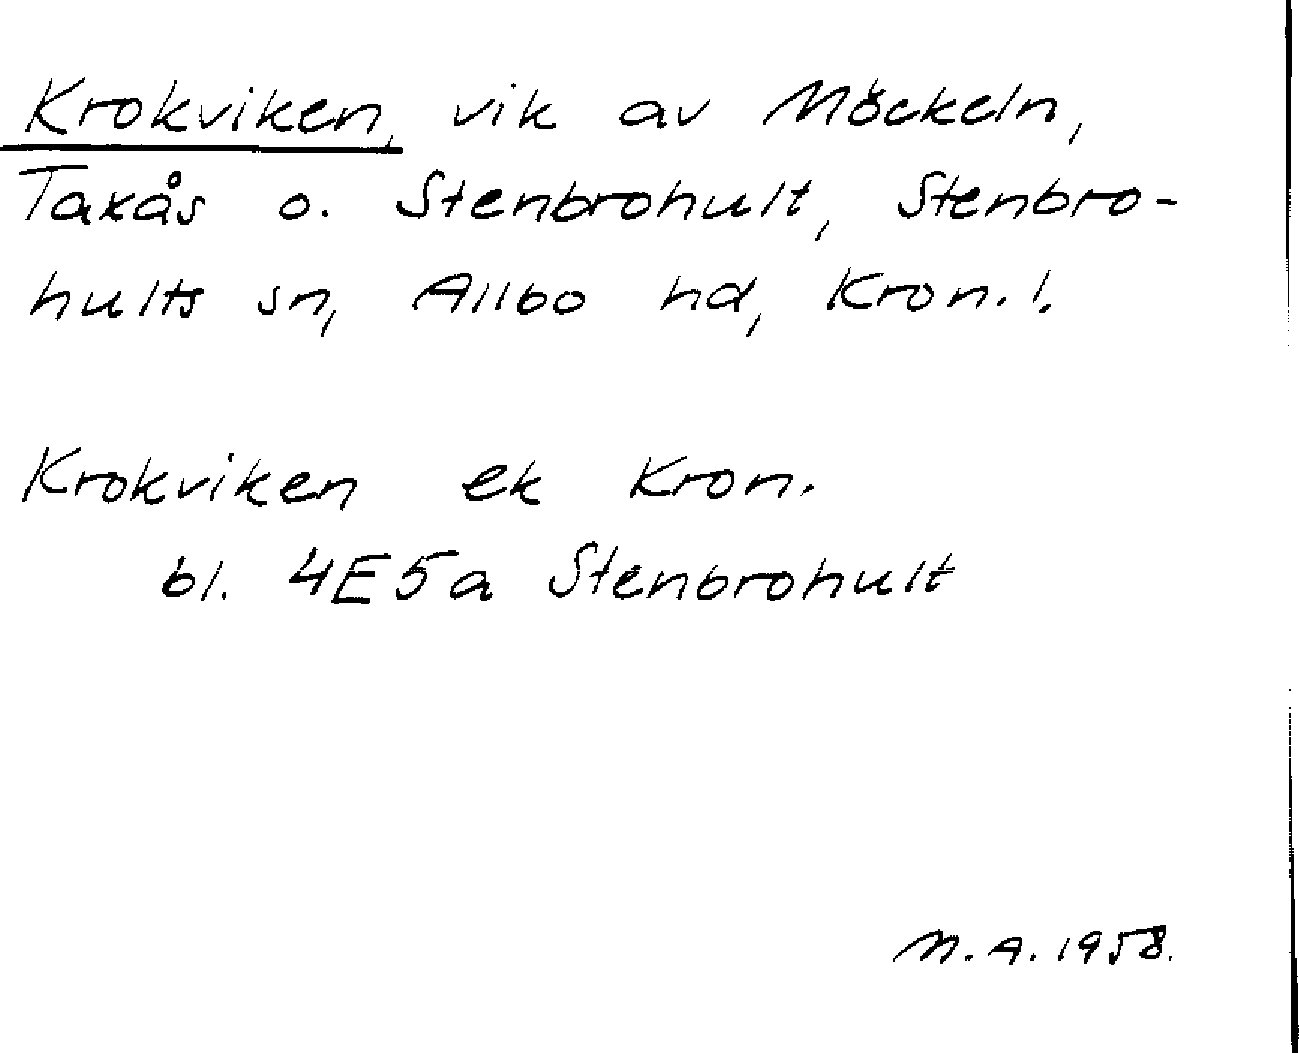 Krokviken, vik av Möckeln,
Taxås o. Stenbrohult, Stenbro-
hults sn, Allbo hd, Kron. l.
Krokviken ek Kron.
bl. 4E5a Stenbrohult
M.A. 1958.